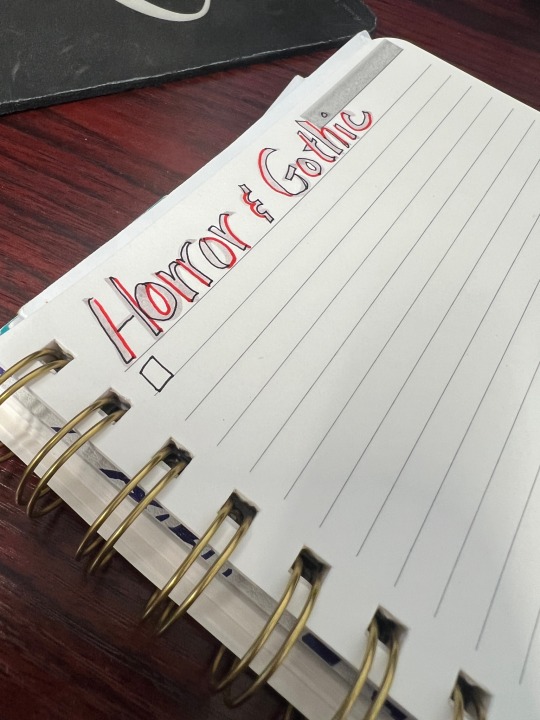 Horror & Gothic